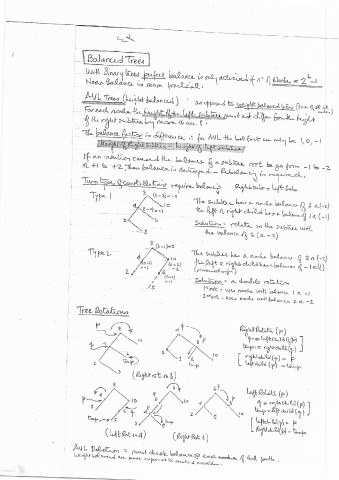 Balanced Trees
With Binary trees perfect balance is only achieved if nº of Nodes = 2^t - 1
Near balance is more practical.
AVL Trees (height balanced) as opposed to weight balanced trees
For each node the height of the left subtree must not differ from the height
of the right subtree by more than 1.
The balance factor is difference ∴ for AVL the bal. fact can only be 1, 0, -1
Height of Right subtree - height of left subtree
If an insertion caused the balance of a subtree root to go from -1 to -2
or +1 to +2, then balance is destroyed - Rebalancing is required.
Two types of constellations require balancing Right subtree - Left Subtree
Type 1
The subtree has a node balance of 2 or (-2)
the left or right child has a balance of 1 or (-1)
Solution = rotate on the subtree with
the balance of 2 (or -2)
Type 2
The subtree has a node balance of 2 or (-2)
the left or right child has balance of -1 or (1)
Solution = a double rotation
1st rot = use node with balance 1 or -1
2nd rot = use node with balance 2 or -2
Tree Rotations
Right Rotate (p)
q = left child (p)
temp = right child (q)
right child (q) = p
left child (p) = temp
(Right rot on 8)
Left Rotate (p)
q = right child (p)
temp = left child (q)
left child (q) = p
Right child (p) = temp
(Left Rot on 4) (Right Rot 8)
AVL Deletion = must check balance @ each member of full path.